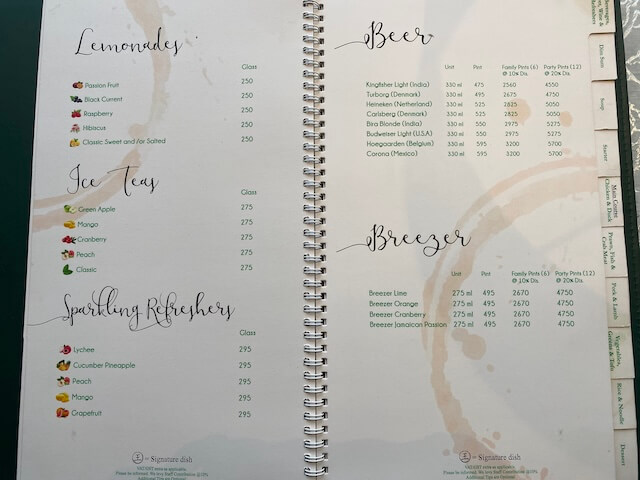 Lemonades
Glass
Passion Fruit 250
Black Current 250
Raspberry 250
Hibiscus 250
Classic Sweet and /or Salted 250
Ice Teas
Glass
Green Apple 275
Mango 275
Cranberry 275
Peach 275
Classic 275
Sparkling Refreshers
Glass
Lychee 295
Cucumber Pineapple 295
Peach 295
Mango 295
Grapefruit 295
Signature dish
Beer
Unit Pint Family Pints (6) Party Pints (12)
@ 10% Dis. @ 20% Dis.
Kingfisher Light (India) 330 ml 475 2560 4550
Tuborg (Denmark) 330 ml 495 2675 4750
Heineken (Netherland) 330 ml 525 2825 5050
Carlsberg (Denmark) 330 ml 525 2825 5050
Bira Blonde (India) 330 ml 550 2975 5275
Budweiser Light (U.S.A) 330 ml 550 2975 5275
Hoegaarden (Belgium) 330 ml 595 3200 5700
Corona (Mexico) 330 ml 595 3200 5700
Breezer
Unit Pint Family Pints (6) Party Pints (12)
@ 10% Dis. @ 20% Dis.
Breezer Lime 275 ml 495 2670 4750
Breezer Orange 275 ml 495 2670 4750
Breezer Cranberry 275 ml 495 2670 4750
Breezer Jamaican Passion 275 ml 495 2670 4750
Signature dish
Dim Sum
Soup
Starter
Main Course
Chicken & Duck
Prawn, Fish &
Crab Meat
Pork & Lamb
Vegetables,
Greens & Tofu
Rice & Noodle
Dessert